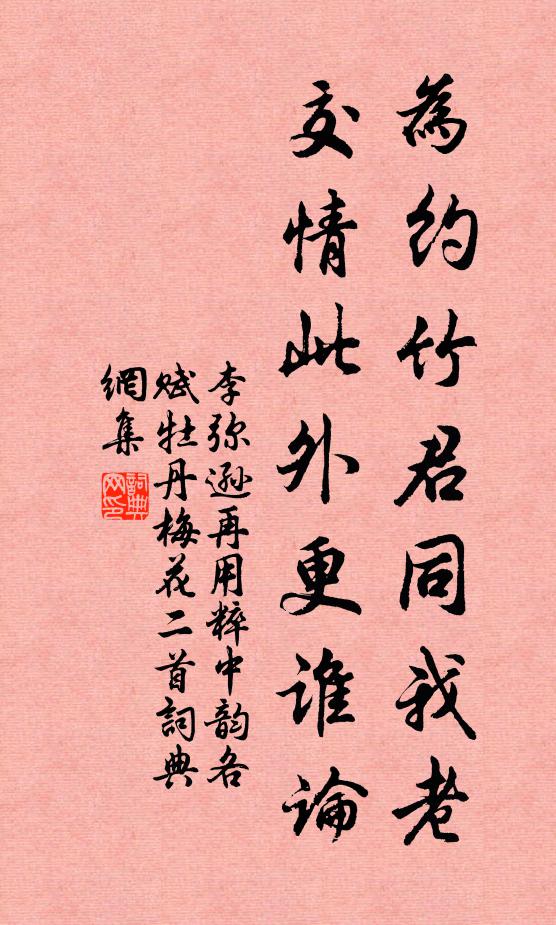 為約竹君同我老
交情此外更誰論
李弥遜再用粹中韵各
賦牡丹梅花二首詞典
網集
詞典
网印